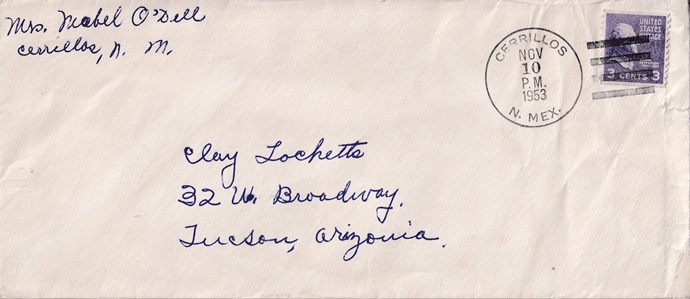 Mrs. Mabel O'Dell
Cerrillos, N. M.
CERRILLOS
NOV
10
P.M.
1953
N. MEX.
UNITED
STATES
POSTAGE
3 CENTS 3
Clay Locketts
32 W. Broadway.
Tucson, Arizonia.